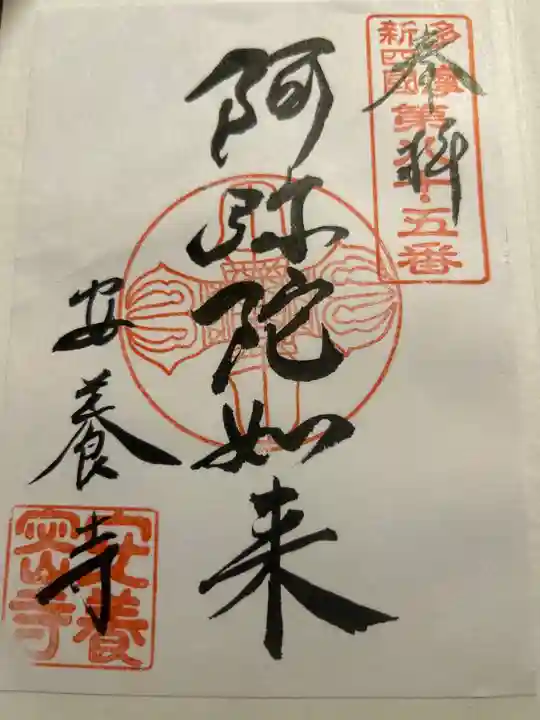 奉拝
多摩
新四國
十五番
阿弥陀如来
安養寺
安養
密寺